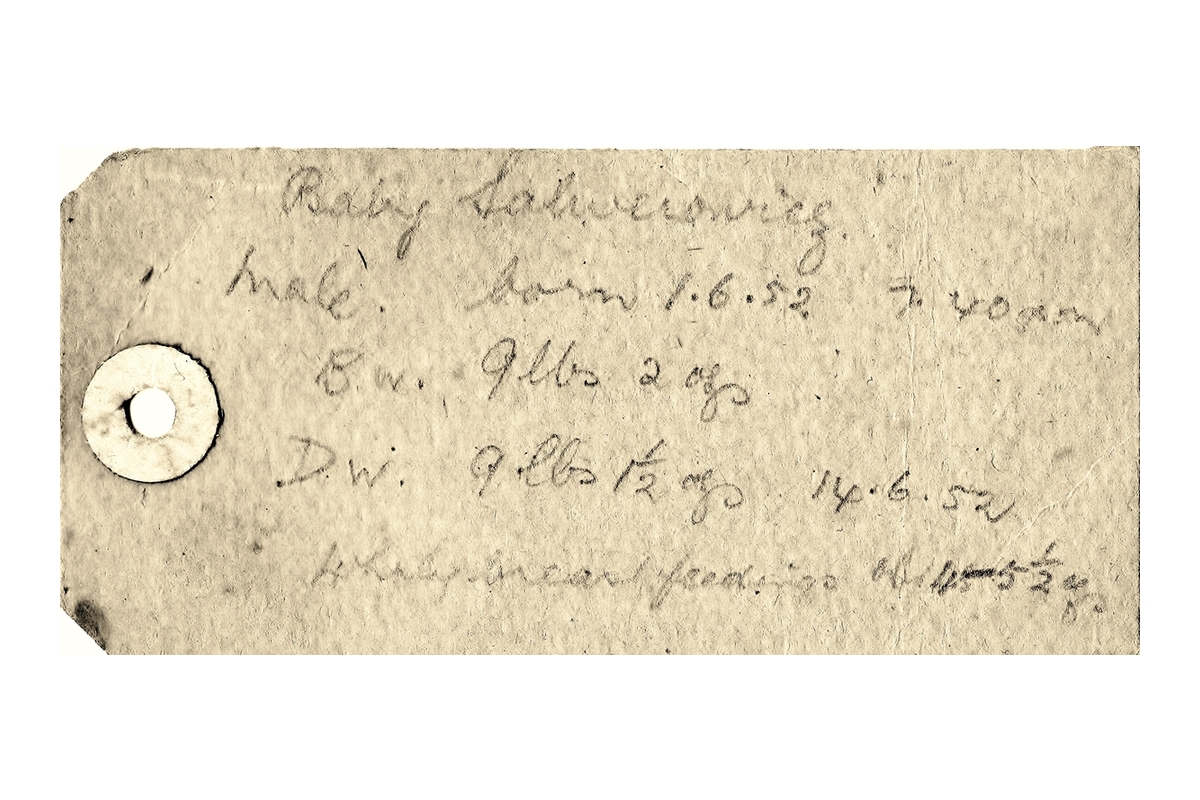 Baby Salwerowicz.
Male. born 1.6.52 7.40am
B.w. 9lbs 2 ozs
D.W. 9lbs 1½ ozs 14.6.52
Wholly breast feedings 4½-5½ oz.